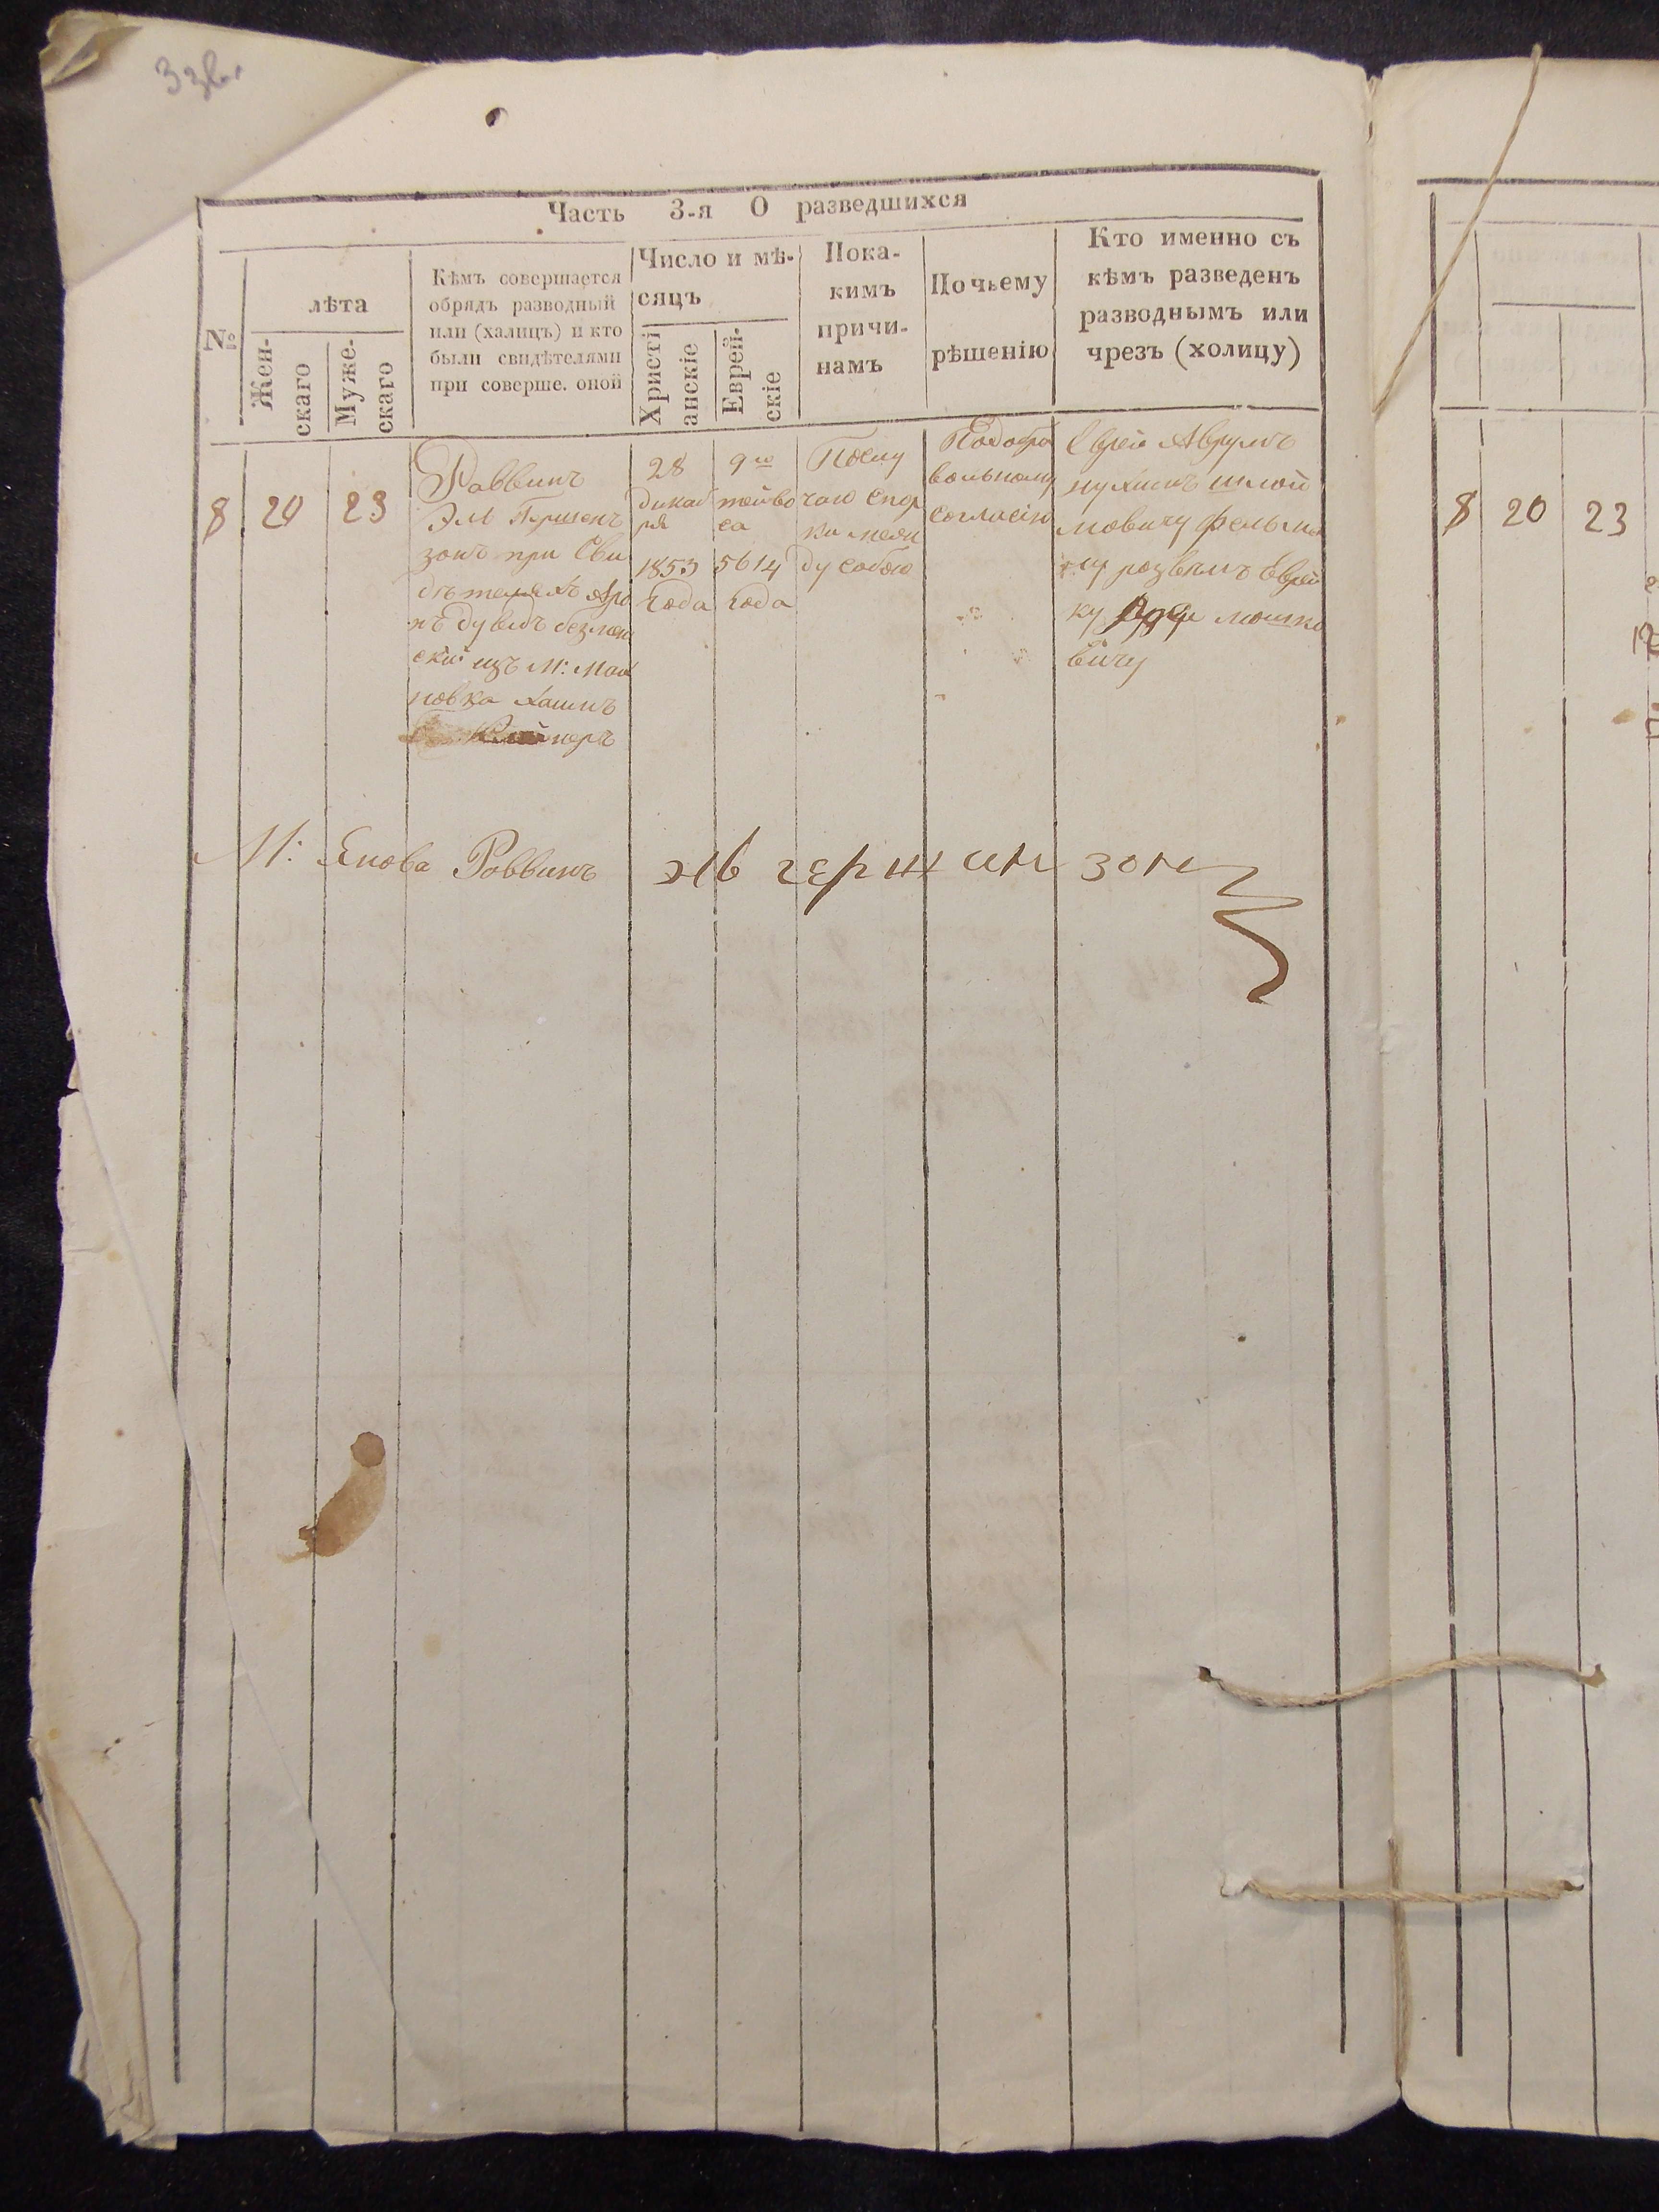 3 зв.
Часть 3-я О разведшихся
№
лѣта
Жен-
скаго
Муже-
скаго
Кѣмъ совершается
обрядъ разводный
или (халицъ) и кто
были свидѣтелями
при соверше. оной
Число и мѣ-
сяцъ
Христі
анскіе
Еврей-
скіе
Пока-
кимъ
причи-
намъ
Почьему
рѣшенію
Кто именно съ
кѣмъ разведенъ
разводнымъ или
чрезъ (холицу)
8
20
23
Раввинъ
Эль Гершен
зонъ при Сви
дѣтеляхъ Аро
нъ Дувидъ
изъ М:
новка Хаимъ
28
дикаб
ря
1853
Года
9го
тейво
са
5614
Года
Послу
чаю Спор
ки меж
ду собою
Подобро
вольному
Согласію
Еврей Аврумъ
нухимъ шлой
мовичу фельма
ну розвелъ Еврей
ку мошко
вичу
М: Янова Раввинъ эль гершинзон
8
20
23